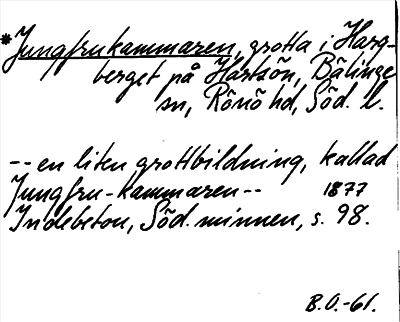 *Jungfrukammaren, grotta i Harg-
berget på Hartsön, Bälinge
sn, Rönö hd, Söd. l.
-- en liten grottbildning, kallad
Jungfru-kammaren-- 1877
Indebetou, Söd. minnen, s. 98.
B.O.-61.